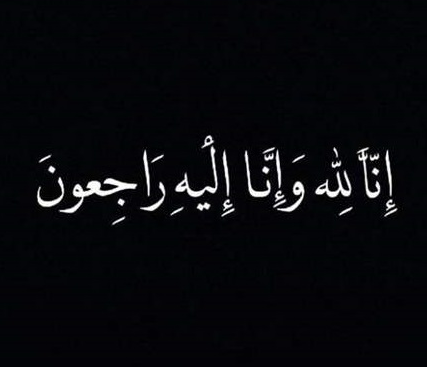 إِنَّا لِلّٰه وَإِنَّا إِلَيْهِ رَاجِعونَ